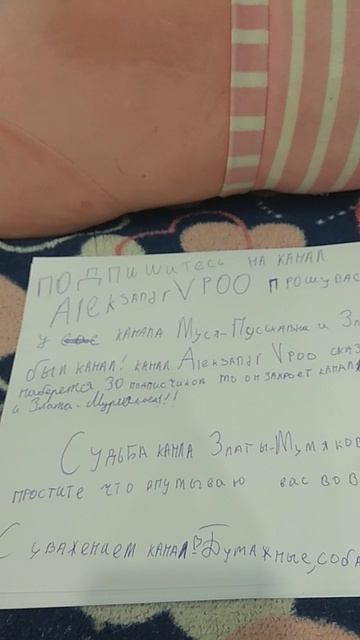 ПОДПИШИТЕСЬ НА КАНАЛ
AleKsANdr VPOO ПРОШУ ВАС
У КАНАЛА Муся-Пуськавна и З
был КАНАЛ! КАНАЛ AleksANdr Vpoo СКАЗ
наберется 30 подписчиков то он закроет канал
и Злата-
СУДЬБА КАНЛА ЗЛАТЫ-МУМЯКОВ
ПРОСТИТЕ ЧТО ОПУТЫВАЮ ВАС ВО В
С УВАЖЕНИЕМ КАНАЛ БУМАЖНЫЕ, СОБА